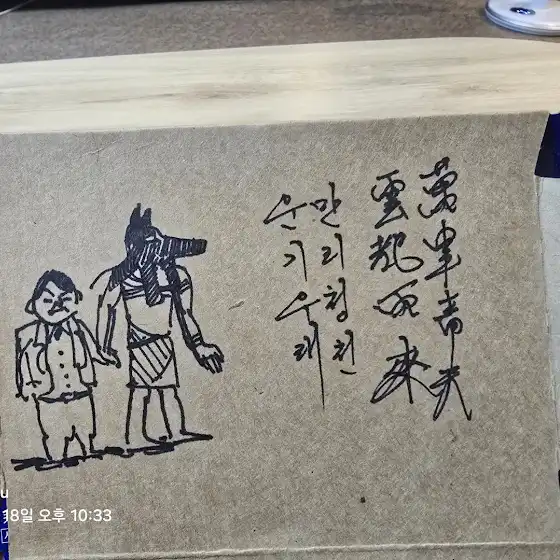 萬里青天
雲起雨來
만리청천
운기우래
8일 오후 10:33